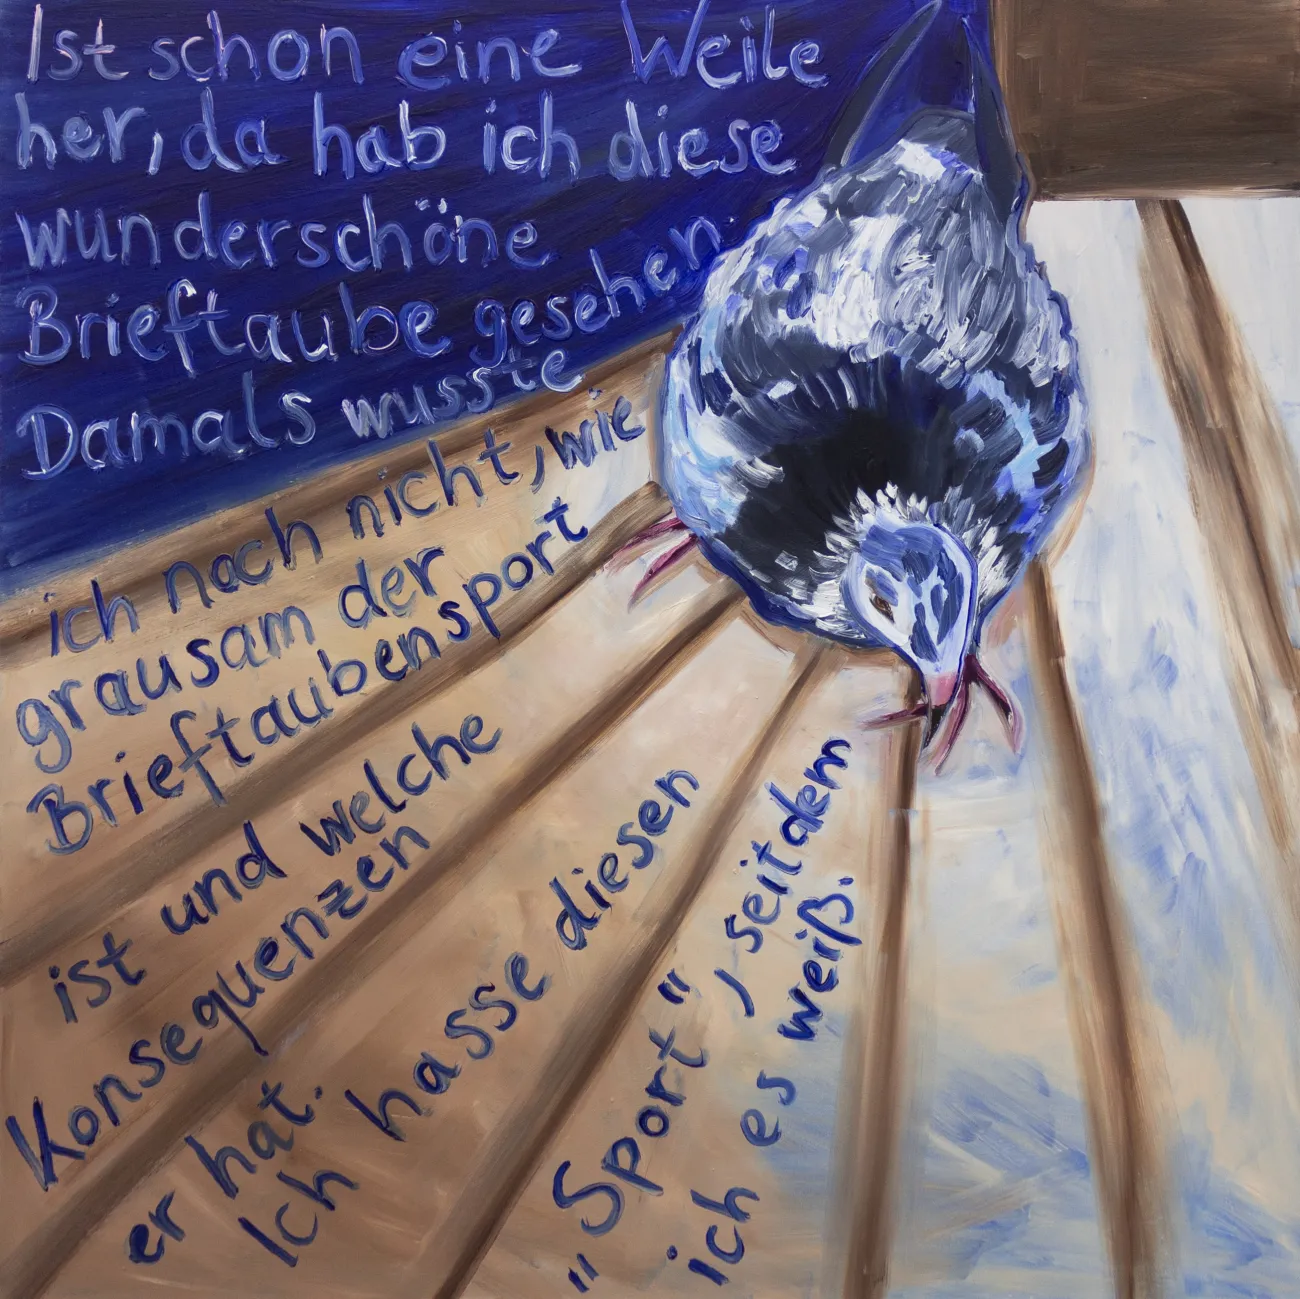 Ist schon eine Weile
her, da hab ich diese
wunderschöne
Brieftaube gesehen.
Damals wusste
ich noch nicht, wie
grausam der
Brieftaubensport
ist und welche
Konsequenzen
er hat.
Ich hasse diesen
„Sport", seitdem
ich es weiß.